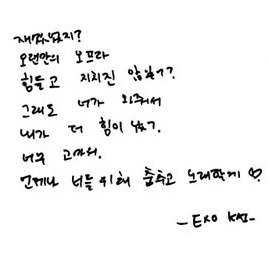 재밌었지?
오랜만의 오프라
힘들고 지치진 않았나?
그래도 너가 와줘서
내가 더 힘이 났어.
너무 고마워.
언제나 너를 위해 춤추고 노래할게 ♡
- EXO KAI -